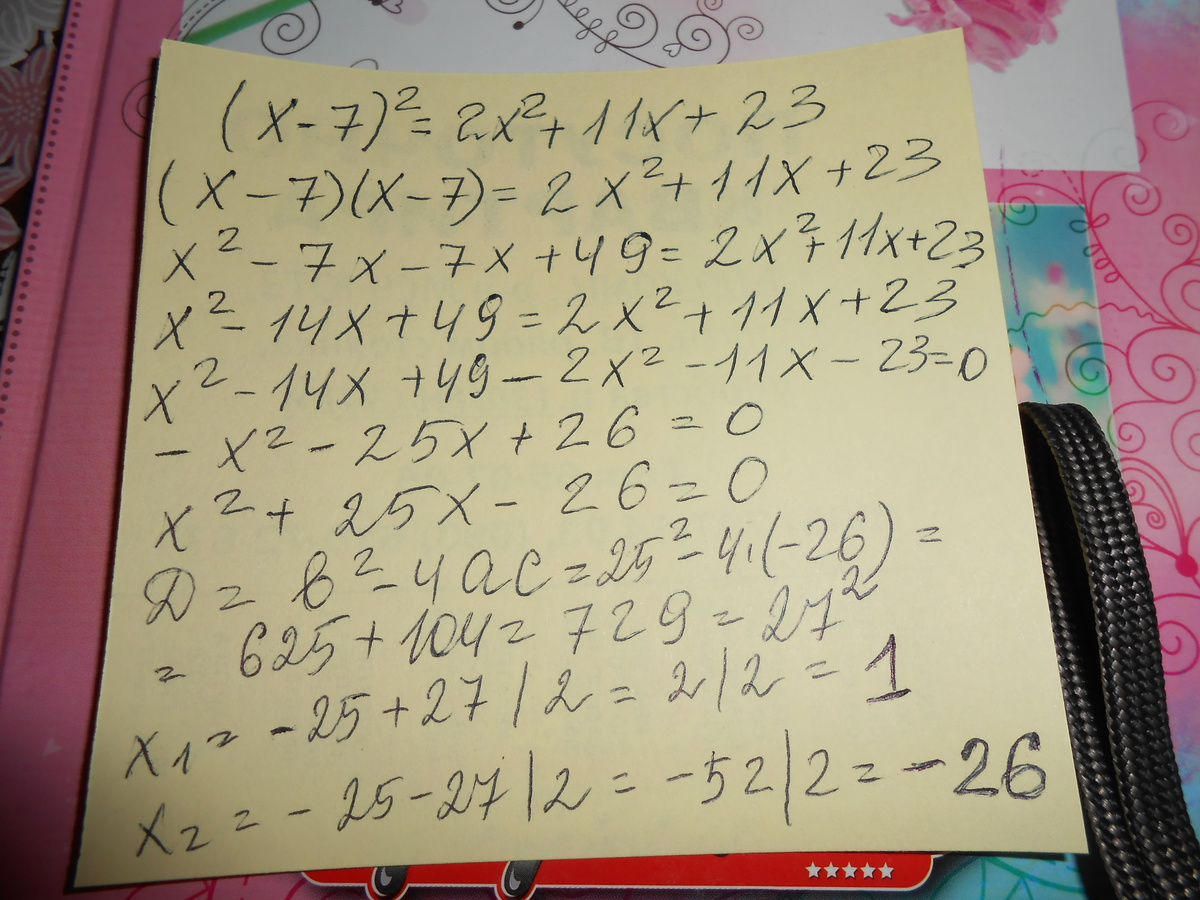 (x-7)²=2x²+11x+23
(x-7)(x-7)=2x²+11x+23
x²-7x-7x+49=2x²+11x+23
x²-14x+49=2x²+11x+23
x²-14x+49-2x²-11x-23=0
-x²-25x+26=0
x²+25x-26=0
D=b²-4ac=25²-4·(-26)=
=625+104=729=27²
x₁=-25+27/2=2/2=1
x₂=-25-27/2=-52/2=-26